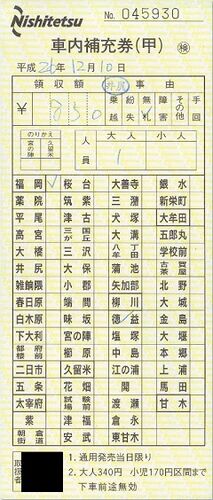 Nishitetsu
No. 045930
車内補充券(甲) 検
平成26年12月10日
領収額 事由
¥ 850 乗越 紛失 無札 その他 手回
のりかえ 大人 小人
宮の陣 久留米 人員 1
福岡 桜台 大善寺 銀水
薬院 筑紫 三潴 新栄町
平尾 津古 犬塚 大牟田
高宮 三国が丘 大溝 五郎丸
大橋 三沢 八丁牟田 学校前
井尻 大保 蒲池 古賀茶屋
雑餉隈 小郡 矢加部 北野
春日原 端間 柳川 大城
白木原 味坂 徳益 金島
下大利 宮の陣 塩塚 大堰
都府楼前 櫛原 中島 本郷
二日市 久留米 江の浦 上浦
五条 花畑 開 馬田
太宰府 試験場前 渡瀬 甘木
紫 津福 倉永
朝倉街道 安武 東甘木
取扱者 1. 通用発売当日限り
2. 大人340円 小児170円区間まで
下車前途無効